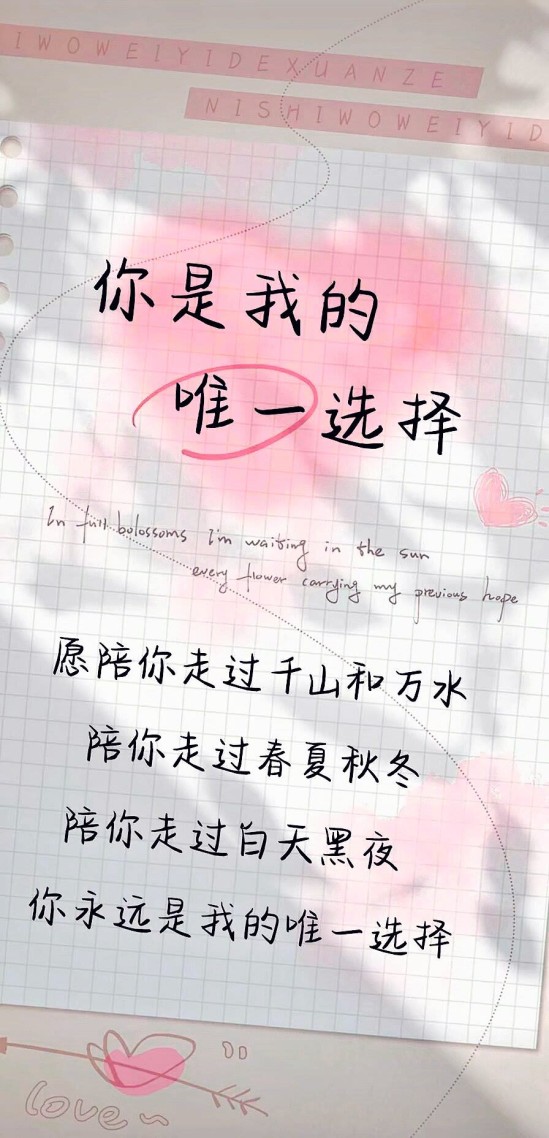 IWOWEIYIDEXUANZE
NISHIWOWEIYID
你是我的
唯一选择
In full bolossoms I'm waiting in the sun
every flower carrying my previous hope
愿陪你走过千山和万水
陪你走过春夏秋冬
陪你走过白天黑夜
你永远是我的唯一选择
love~